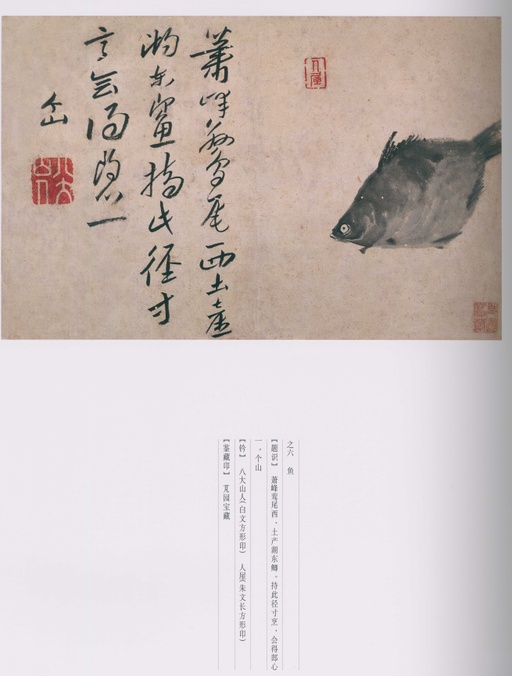 人屋
尾西土產
湖东 持此径寸
会得 一
个山
之六 鱼
【题识】 萧峰鸾尾西,土产湖东鲫,持此径寸烹,会得鄙心
一。个山
【钤】 八大山人(白文方形印) 人屋(朱文长方形印)
【鉴藏印】 园宝藏